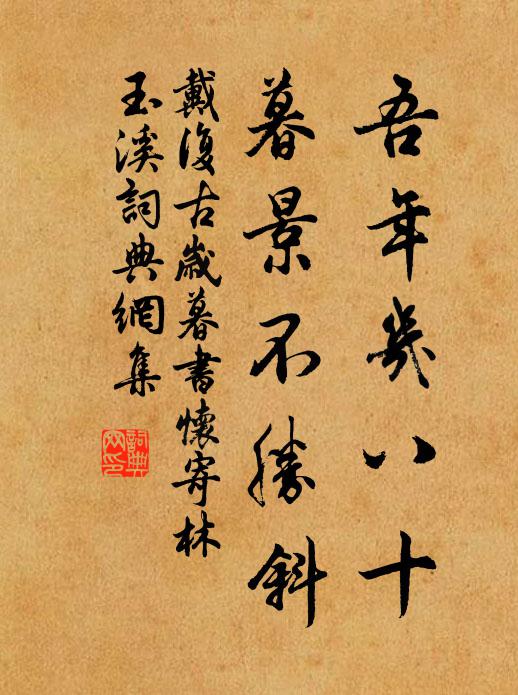 吾年幾八十
暮景不勝斜
戴復古歲暮書懷寄林
玉溪詞典網集
詞典
网印